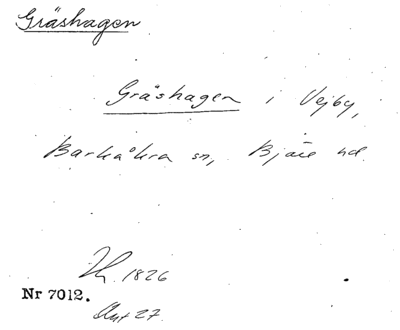 Gräshagen
Gräshagen i Vejby,
Barkåkra sn, Bjäre hd
1826
Nr 7012.
27.